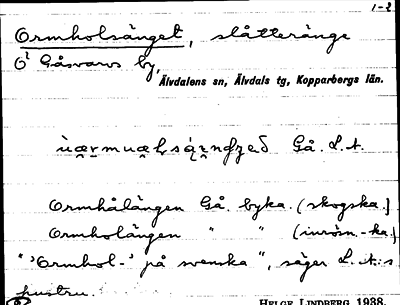 1-2
Ormholsänget, slåtteränge
Ö¹ Gåsvarvs by,
Älvdalens sn, Älvdals tg, Kopparbergs län.
Gå. L.A.
Ormhålängen Gå. byka. (skogska.)
Ormholängen " " (inrösn.-ka.)
"'Ormhol-' på svenska", säger L.A.:s
hustru.
HELGE LINDBERG 1938.